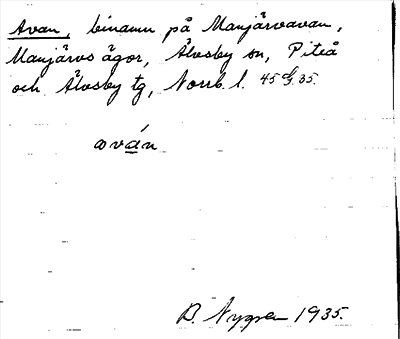 Avan, binamn på Manjärvavan,
Manjärvs ägor, Älvsby sn, Piteå
och Älvsby tg, Norrb. l. 45 G. 35.
aván
B. Nygren 1935.